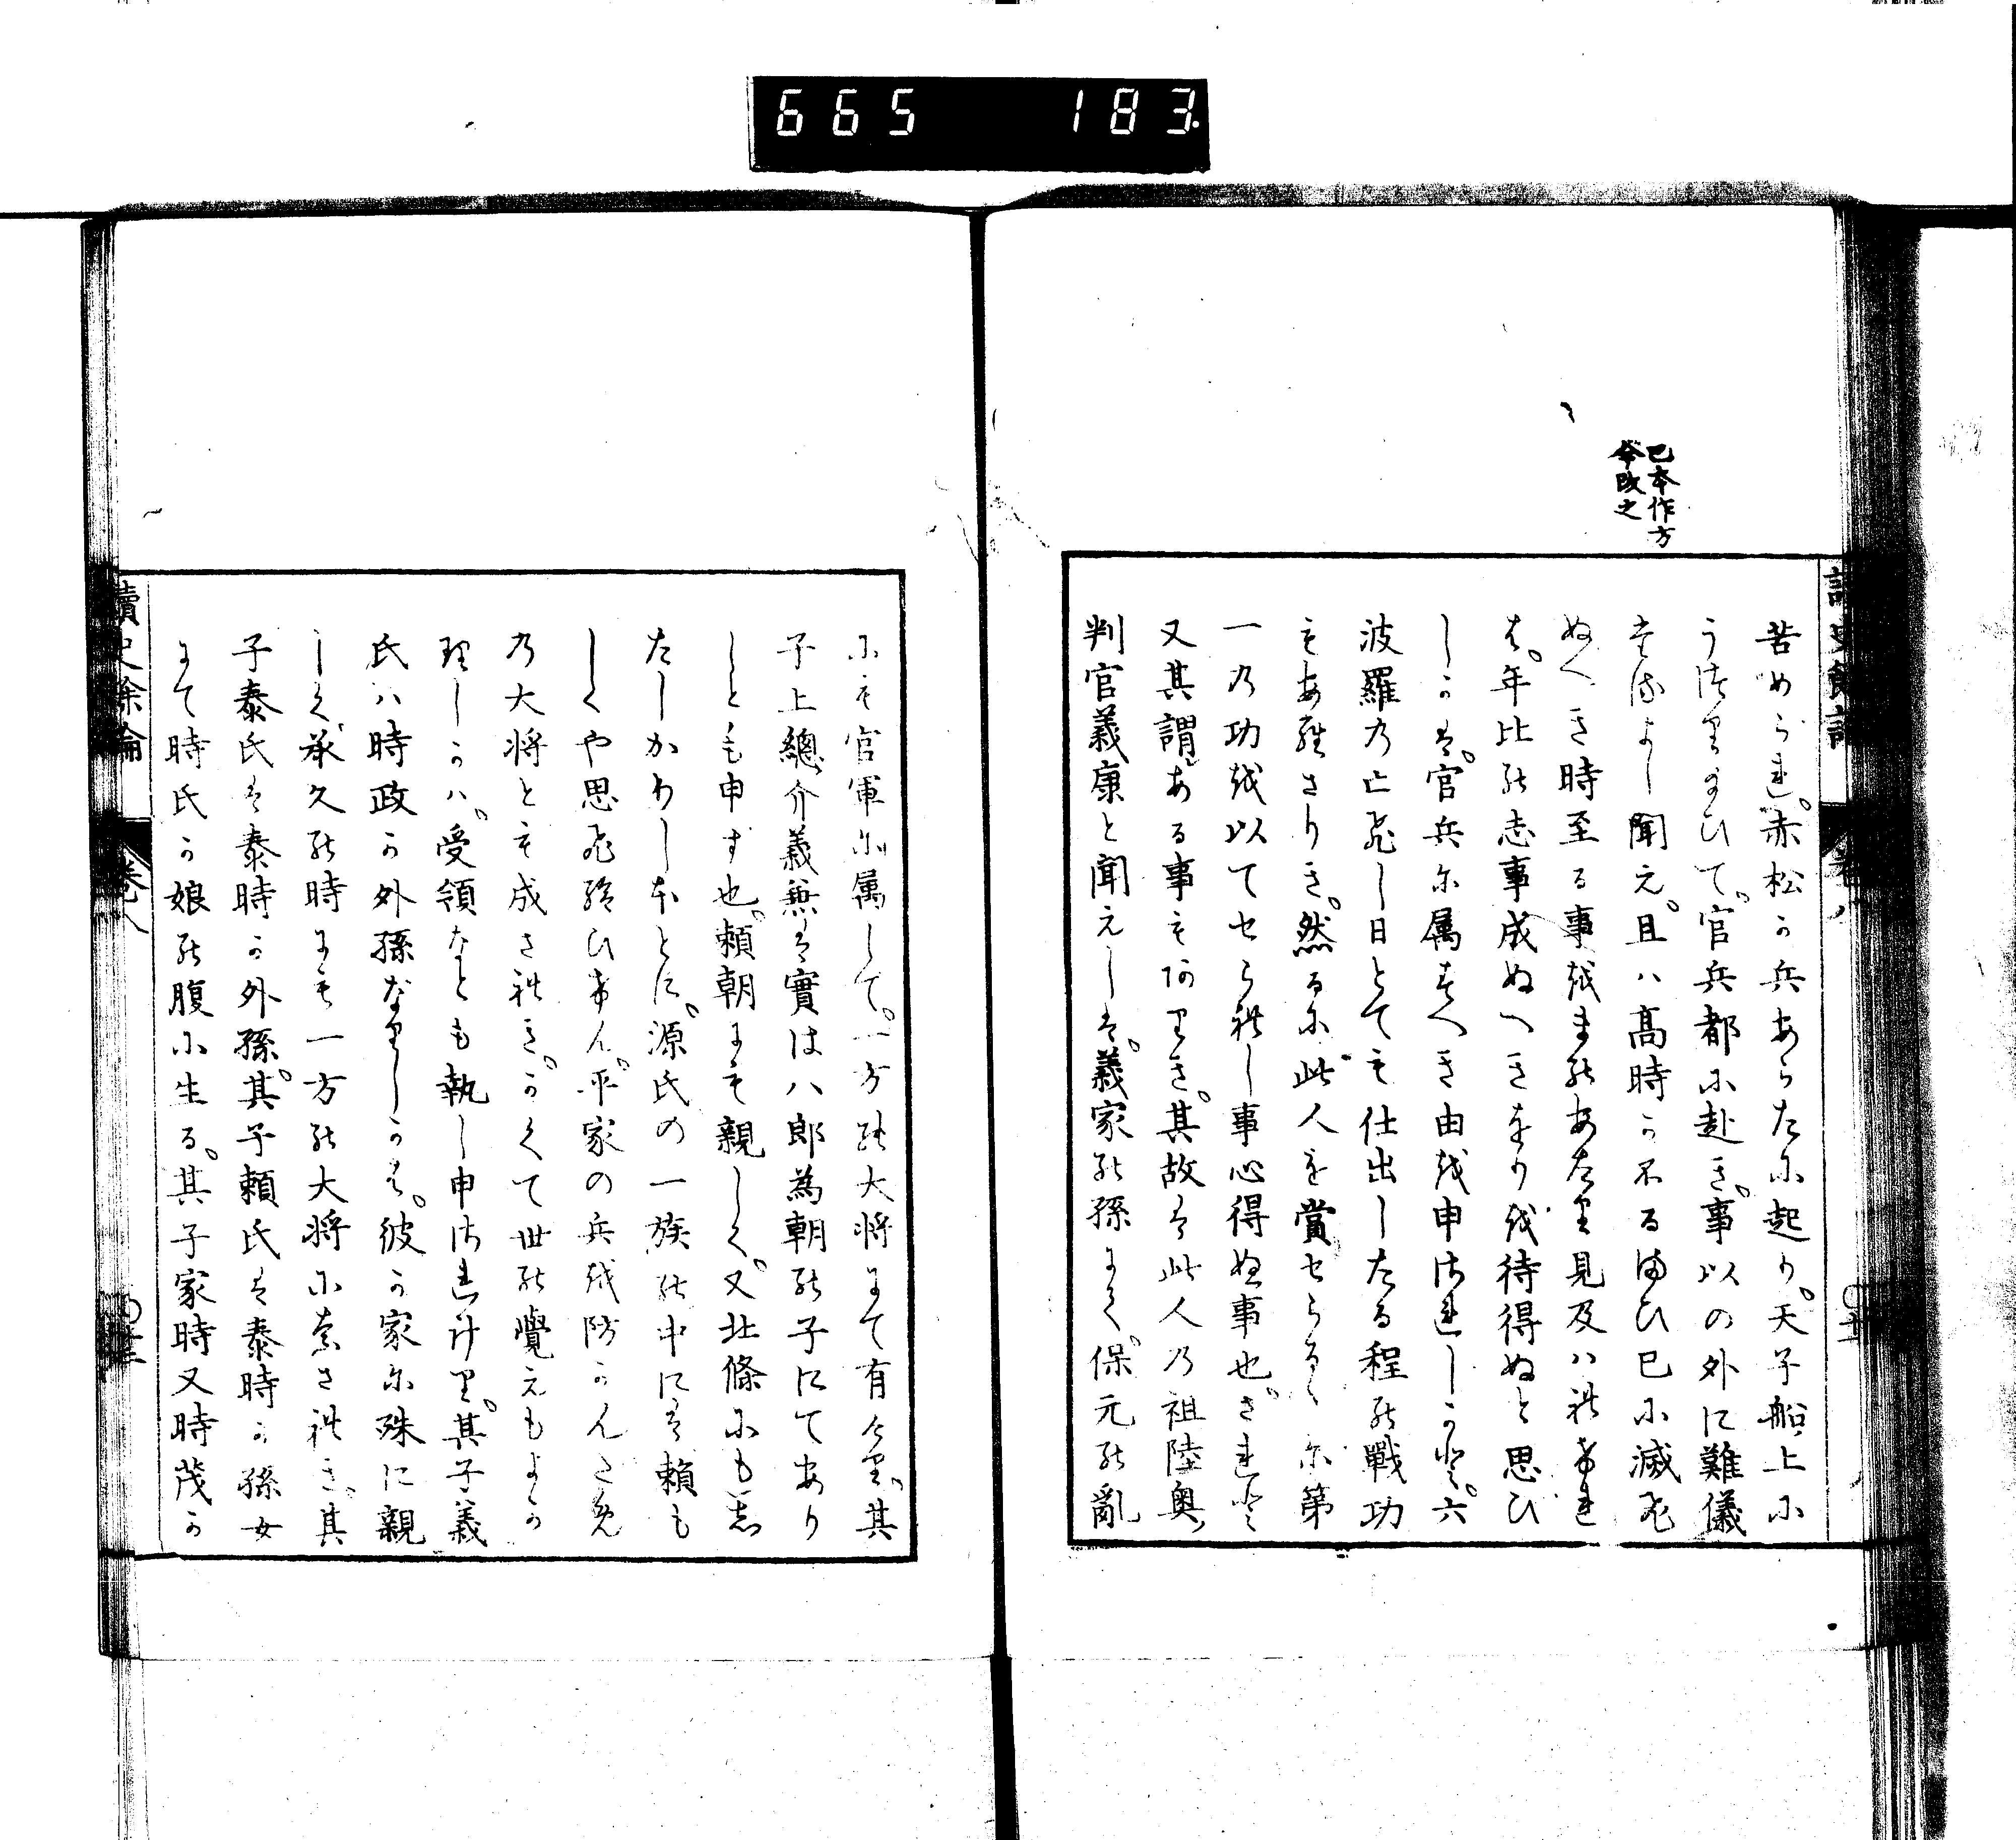 665 183
巳本作方
今改之
苦められ。赤松か兵あらたに起り。天子船上に
うつり玉ひて。官兵都に赴き。事以の外に難儀
するよし聞え。且ハ高時かふるまひ巳に滅ひ
ぬへき時至る事をまのあたり見及ハれけれ
は。年比の志事成ぬへきをりを待得ぬと思ひ
しかは。官兵に属すへき由を申されしかと。六
波羅の亡ひし日とても仕出したる程の戰功
もあらさりき。然るに此人を賞せらるゝに第
一の功を以てせられし事心得ぬ事也。されと
又其謂ある事もありき。其故は此人の祖陸奥
判官義康と聞えしは。義家の孫にて。保元の亂
にも官軍に属して。一方の大将にて有けり。其
子上總介義兼は實は八郎為朝の子にてあり
しとも申す也。頼朝にも親しく。又北條にも志
たしかりしもとに。源氏の一族の中には頼も
しくや思ひ給ひけん。平家の兵を防かんため
の大将とも成されき。かくて世の覺えもよか
りしかハ。受領なとも執し申されけり。其子義
氏ハ時政か外孫なりしかは。彼か家に殊に親
しく。承久の時にも一方の大将になされき。其
子泰氏は泰時か外孫。其子頼氏は泰時か孫女
にて時氏か娘の腹に生る。其子家時又時茂か
讀史餘論 卷八